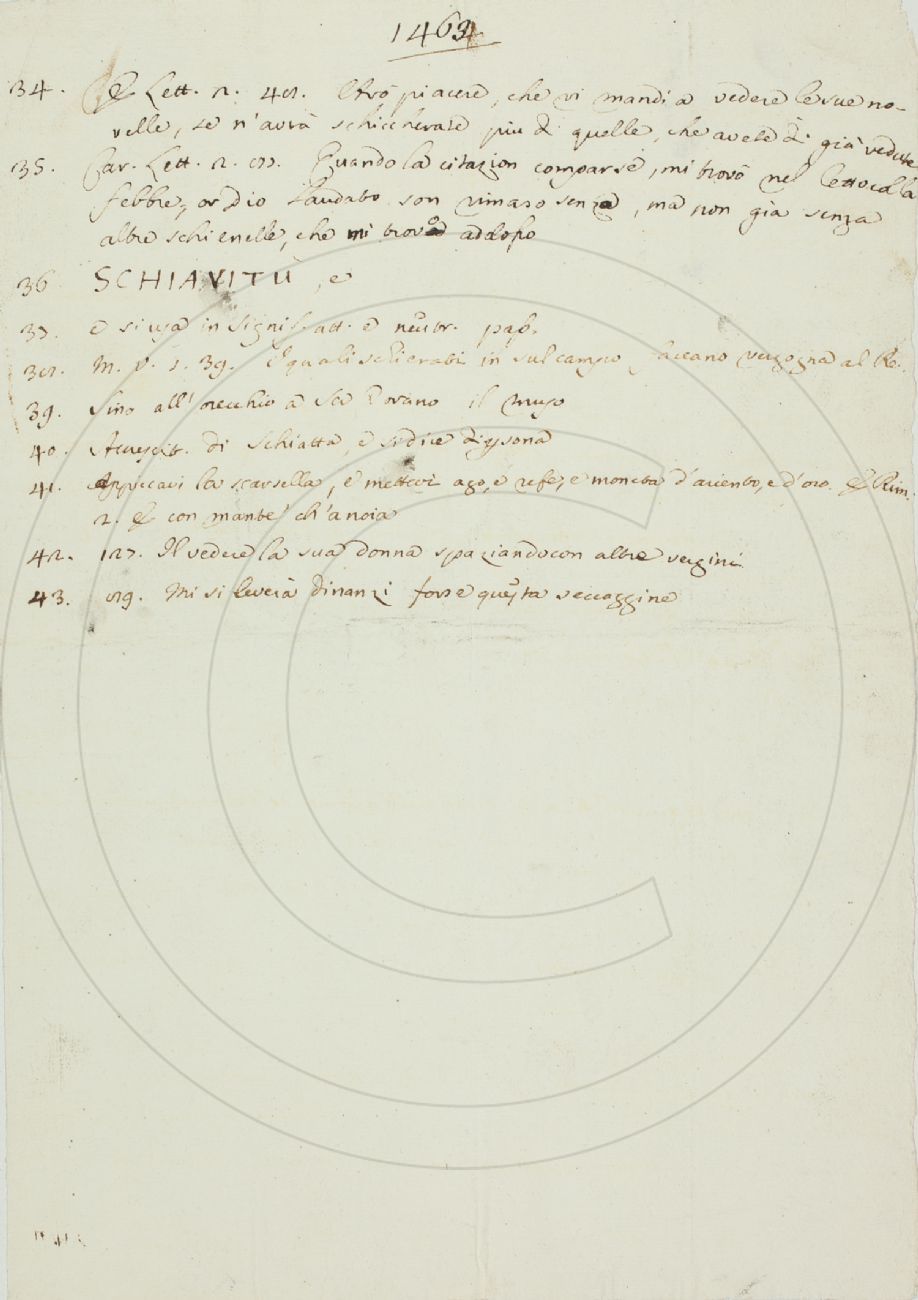 1464
34. E Lett. 2. 48. Avrò piacere, che vi mandi a vedere le sue no-
velle, se n'avrà schiccherate più di quelle, che avete di già vedute
35. Car. Lett. 2. 177. Quando la citazion comparse, mi trovò nel letto colla
febbre, or Dio laudato son rimaso senza, ma non già senza
altre schienelle, che mi trovo addosso
36 SCHIAVITÙ, e
37. e si usa in signif. att. e neutr. pass.
38. M. V. 1. 39. E quali schierati in sul campo faceano vergogna al Re.
39. Sino all'orecchio a se trovano il muso
40. Accrescit. di Schiatta, e si dice di persona
41. Appiccavi la scarsella, e mettevi ago, e refe, e moneta d'ariento, e d'oro. E Rim.
2. E con mante' ch'a noia
42. 127. Il vedere la sua donna spaziando con altre vergini
43. 89. Mi si leverà dinanzi forse questa seccaggine